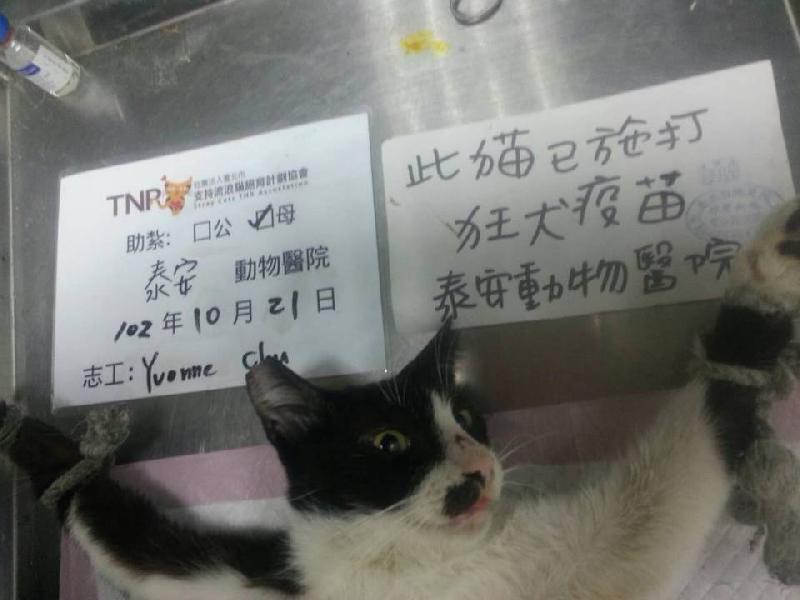 TNR
社團法人臺北市
支持流浪貓絕育計劃協會
Stray Cats TNR Association
助紮: □公 ☑母
泰安 動物醫院
102年10月21日
志工: Yvonne Chu
此猫已施打
狂犬疫苗
泰安動物醫院